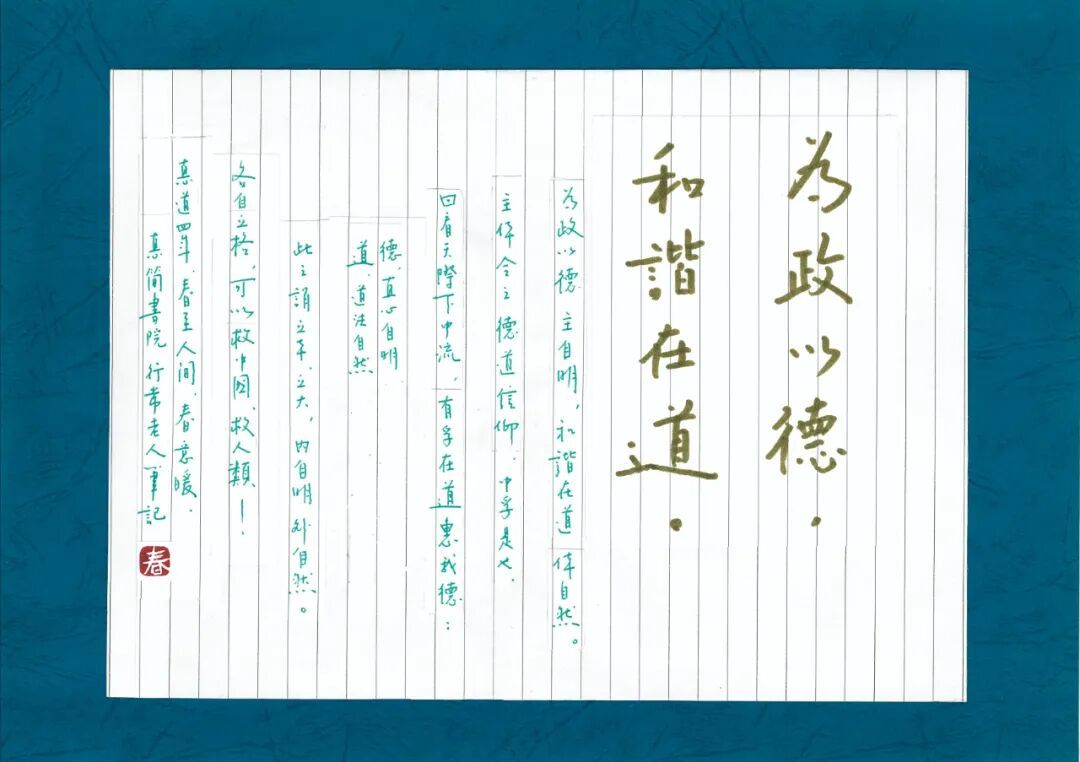 為政以德．
和諧在道．
為政以德 主自明，和諧在道 体自然。
主体合之德道信仰．中孚是也．
回看天際下中流，有孚在道惠我德：
德、直心自明
道、道法自然
此之謂立本、立大，内自明外自然。
各自立格，可以救中国、救人類！
真道四年、春至人间，春意暖．
真简書院 行常老人筆記
春